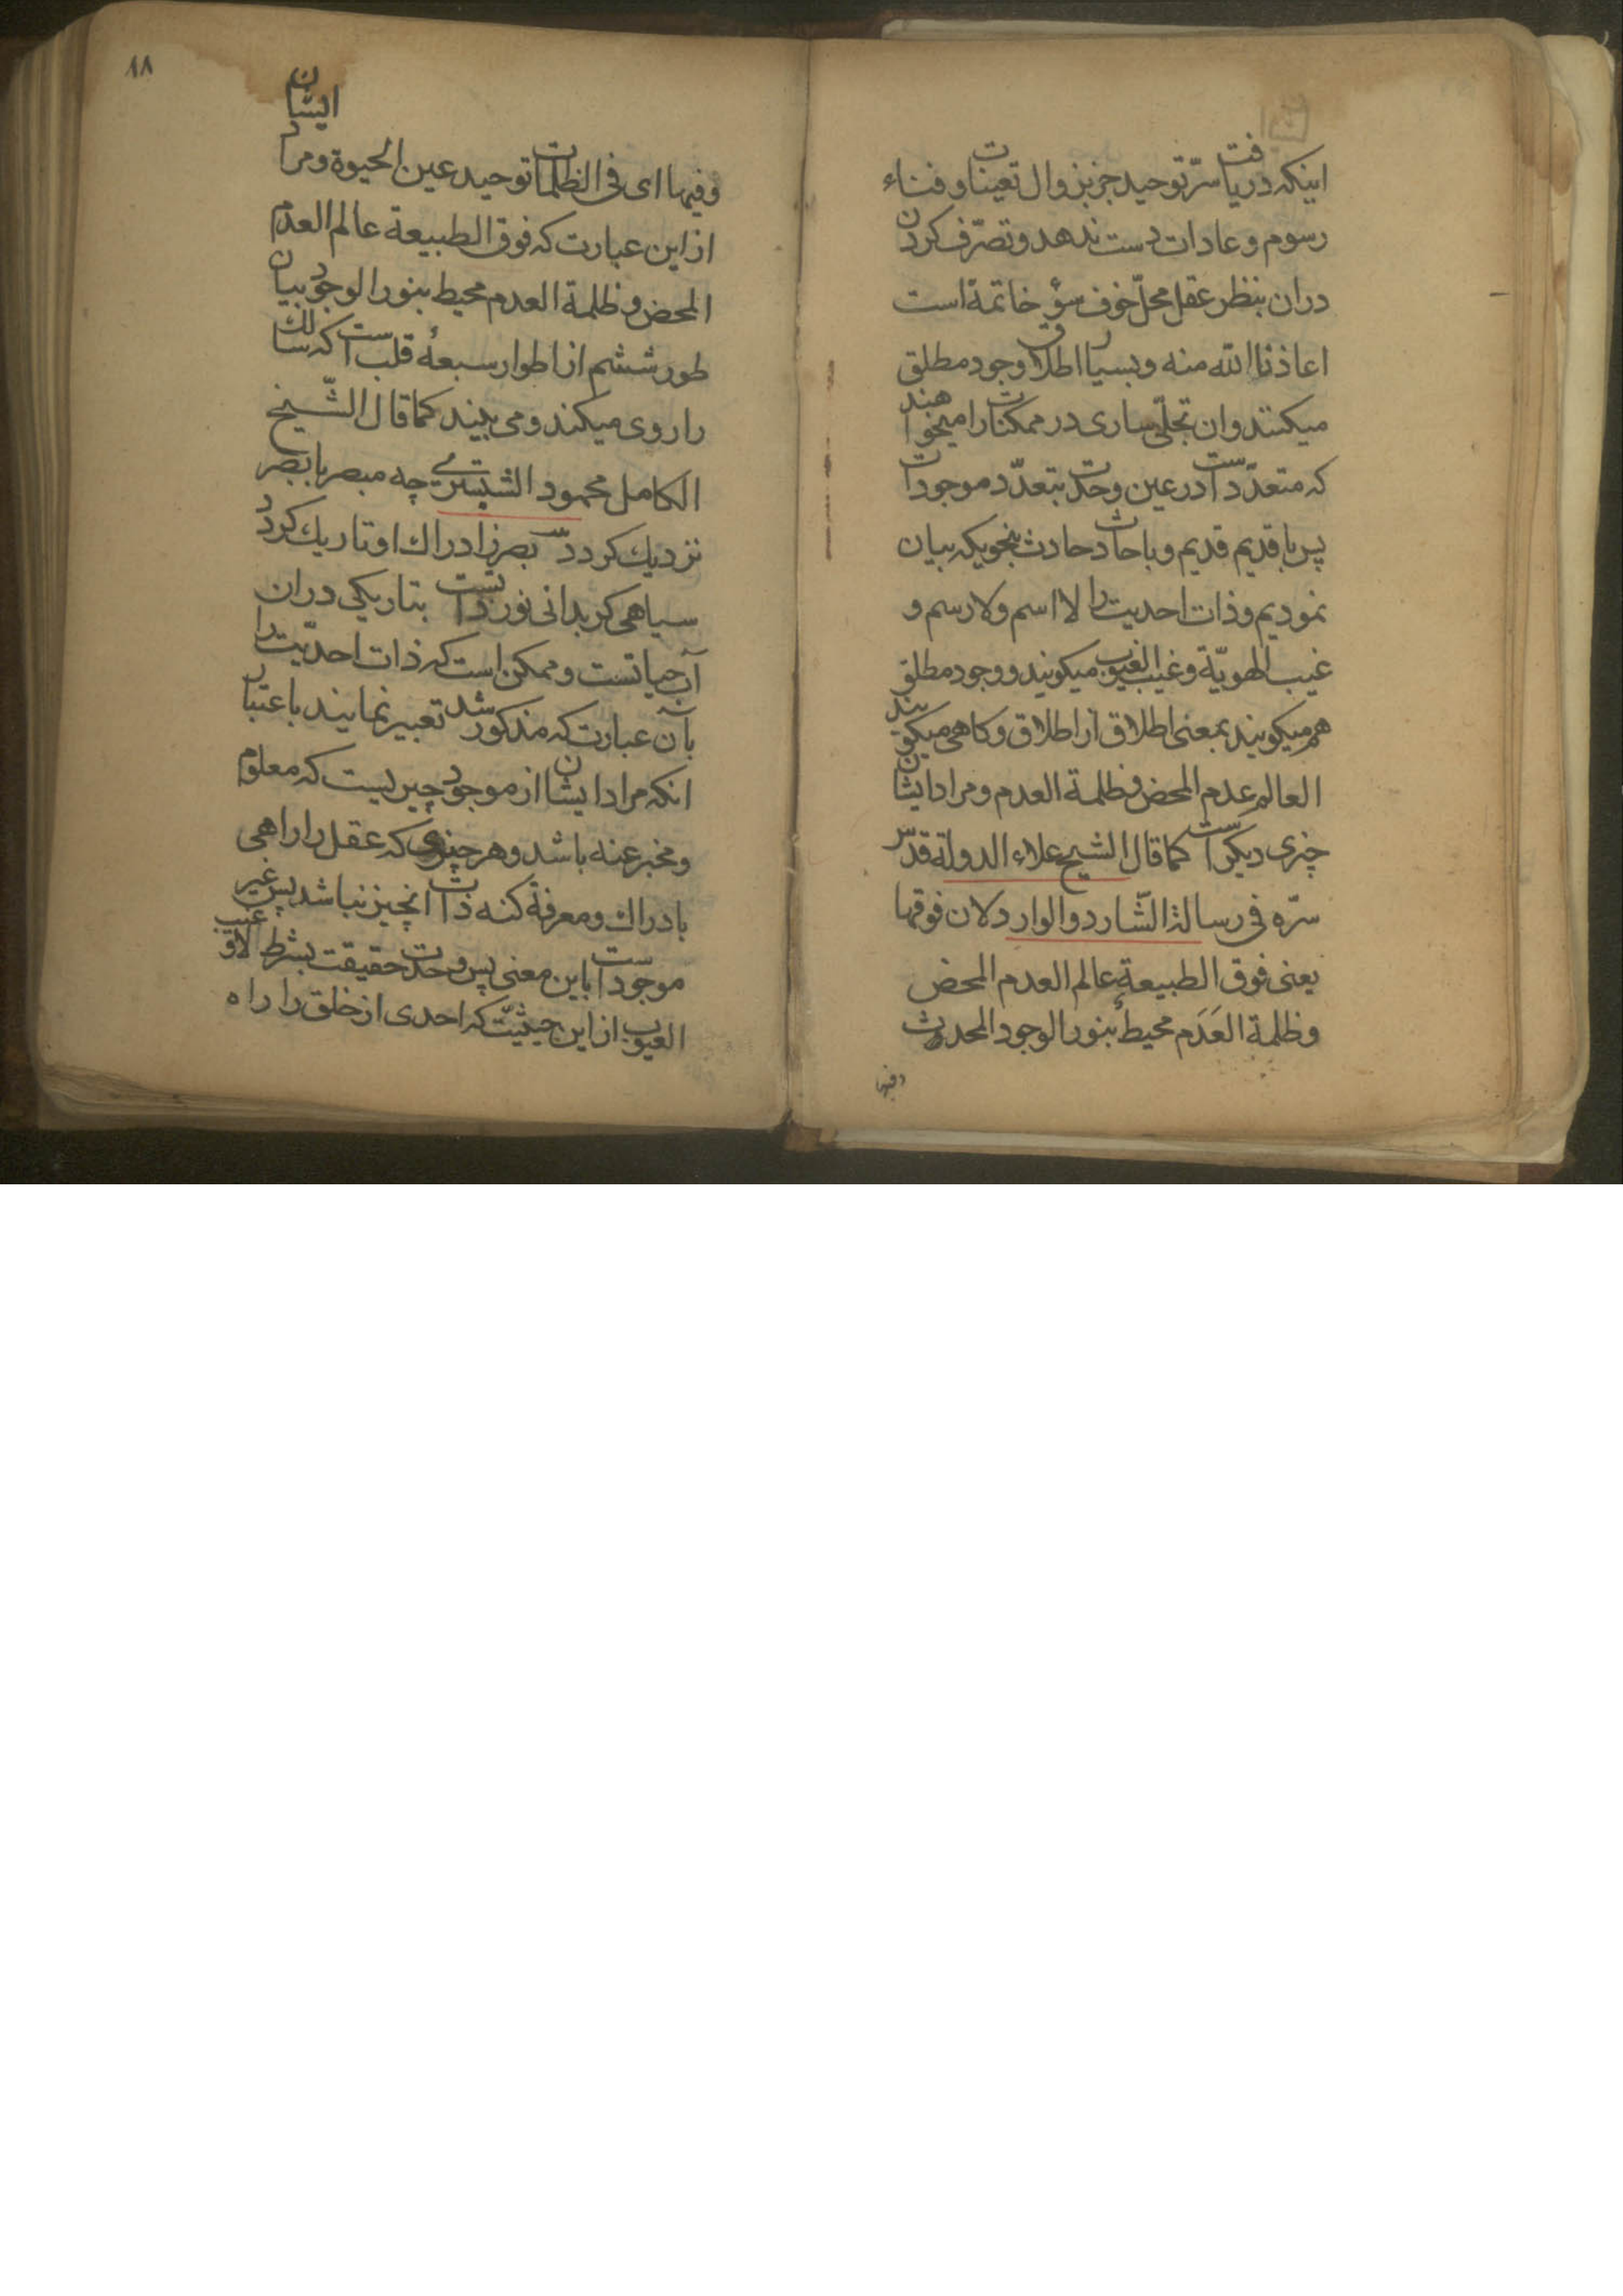 اینکه دریافت سرّ توحید جز بزوال تعینات و فناء
رسوم و عادات دست ندهد و تصرّف کردن
دران بنظر عقل محلّ خوف سؤ خاتمة است
اعاذنا الله منه و بسیار اطلاق وجود مطلق
میکنند و ان تجلّی ساری در ممکنات را میخواهند
که متعدّد است در عین وحدت بتعدّد موجودات
پس با قدیم قدیم و با حادث حادث بنحویکه بیان
نمودیم و ذات احدیت را لا اسم ولا رسم و
غیب الهویّة و غیب الغیوب میکویند و وجود مطلق
هم میکویند بمعنی اطلاق از اطلاق و کاهی میکویند
العالم عدم المحض و ظلمة العدم و مراد ایشان
چیزی دیکر است کما قال الشیخ علاء الدولة قدّس
سرّه فی رسالة الشّارد و الوارد لان فوقها
یعنی فوق الطبیعة عالم العدم المحض
و ظلمة العَدَم محیط بنور الوجود المحدث
وفیها
۱۸
وفیها ای فی الظلمات توحید عین الحیوة و مراد ایشان
از این عبارت که فوق الطبیعة عالم العدم
المحض و ظلمة العدم محیط بنور الوجود بیان
طور ششم از اطوار سبعهٔ قلب است که سالك
را روی میکند و می بیند کما قال الشّیخ
الکامل محمود الشبستری چه مبصر با بصر
نزدیك کردد بصر ز ادراك او تاریك کردد
سیاهی کر بدانی نور ذاتست بتاریکی دران
آب حیاتست و ممکن است که ذات احدیّت را
بآن عبارت که مذکور شد تعبیر نمایند باعتبار
انکه مراد ایشان از موجود چیزیست که معلوم
و مخبر عنه باشد و هر چیزی که عقل را راهی
بادراك و معرفة کنه ذات انچیز نباشد پس غیر
موجود است باین معنی پس وحدت حقیقت بشرط لا و غیب
الغیوب از این حیثیّت که احدی از خلق را راه